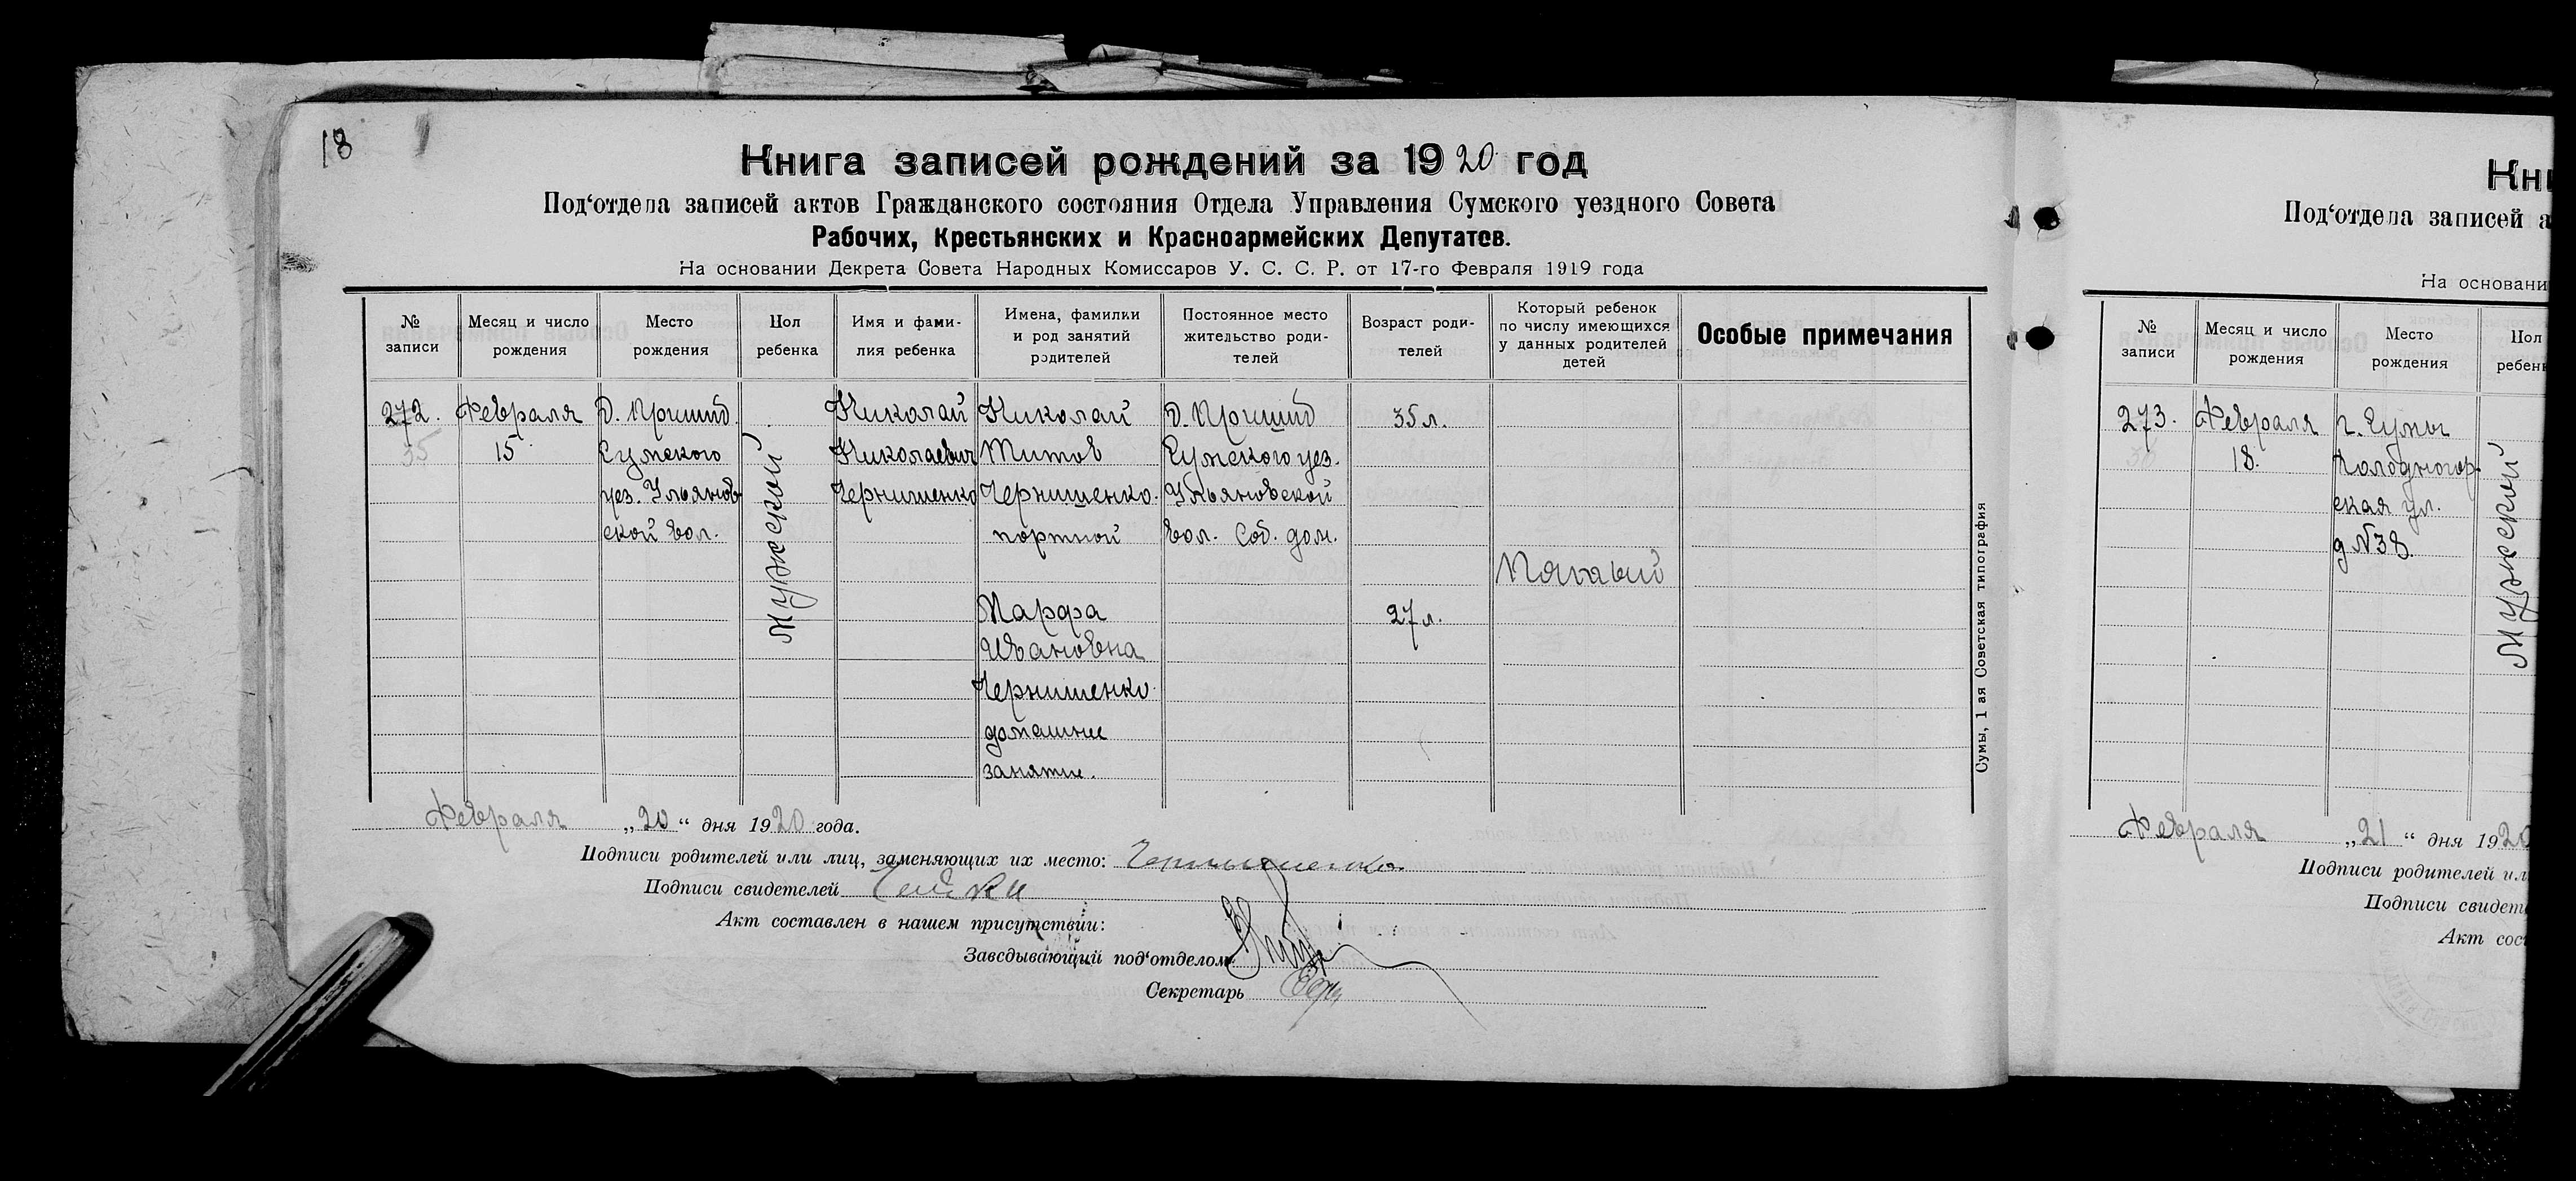 18
Книга записей рождений за 1920 год
Под‘отдела записей актов Гражданского состояния Отдела Управления Сумского уездного Совета
Рабочих, Крестьянских и Красноармейских Депутатов.
На основании Декрета Совета Народных Комиссаров У. С. С. Р. от 17-го Февраля 1919 года
№ записи
Месяц и число рождения
Место рождения
Пол ребенка
Имя и фамилия ребенка
Имена, фамилии и род занятий родителей
Постоянное место жительство родителей
Возраст родителей
Который ребенок по числу имеющихся у данных родителей детей
Особые примечания
272.
35
Февраля
15
Д.
Сумского
уез. Ульянов
ской вол.
Мужской
Николай
Николаевич
Чернишенко
Николай
Титов
Чернишенко.
портной
Марфа
Ивановна
Чернишенко.
домашние
занятие.
Д.
Сумского уез.
Ульяновской
вол. Соб. дом.
35 л.
27 л.
Пятый
Сумы, 1 ая Советская типография
Февраля „20“ дня 1920 года.
Подписи родителей или лиц, заменяющих их место:
Подписи свидетелей
Акт составлен в нашем присутствии:
Заведывающий под‘отделом
Секретарь
Кни
Под‘отдела записей а
На основани
№ записи
Месяц и число рождения
Место рождения
Пол ребен
273.
Февраля
18.
г. Сумы
Холодногор-
ская ул.
д. №38.
Мужской
Февраля „21“ дня 1920
Подписи родителей ил
Подписи свидет
Акт сос